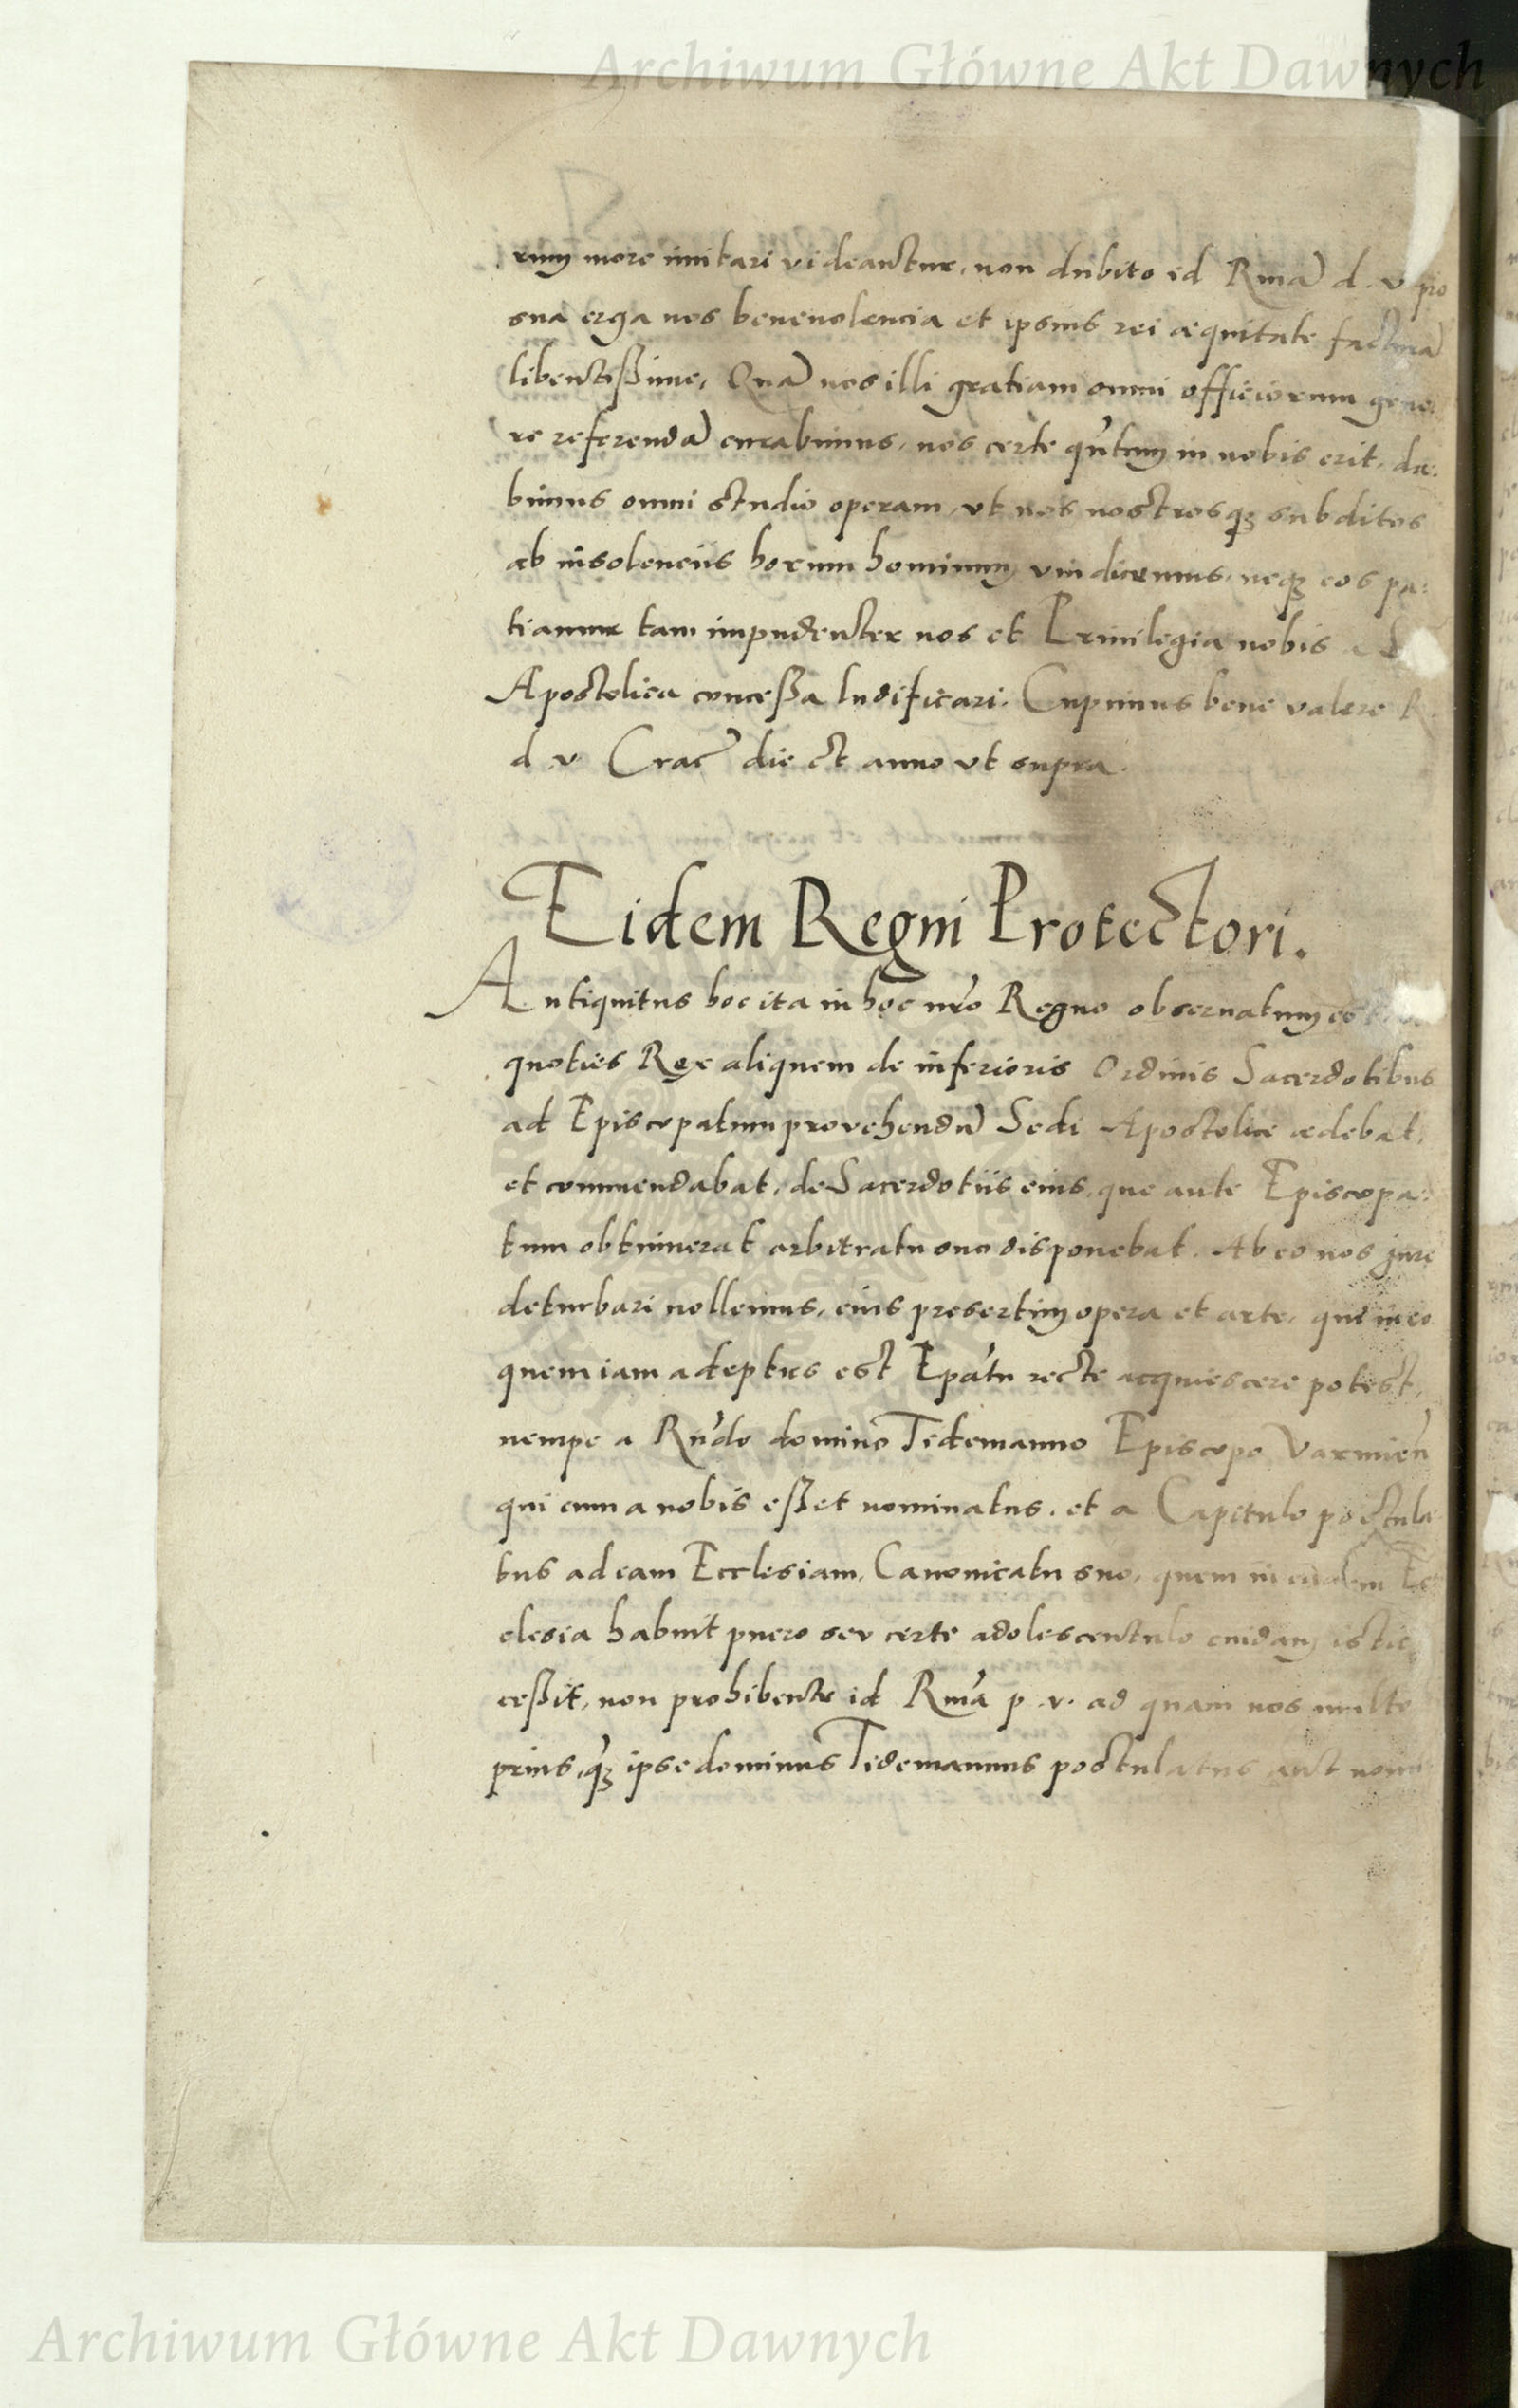 Archiwum Główne Akt Dawnych
rum more imitari videantur, non dubito id Rmã d. v. pro
sua erga nos benevolencia et ipsius rei æquitate facturã
libentißime, Quã nos illi gratiam omni officiorum gene
re referendã curabimus, nos certe qũtum in nobis erit, da:
bimus omni studio operam, vt nos nostrosqꝫ subditos
ab insolenciis horum hominum vindicemus, neqꝫ eos pa:
tiamur tam impudenter nos et Privilegia nobis a S
Apostolica conceßa ludificari. Cupimus bene valere R
d. v. Crac̃ die et anno vt supra.
Eidem Regni Protectori.
Antiquitus hoc ita in hoc nr̃o Regno observatum est
quoties Rex aliquem de inferioris Ordinis Sacerdotibus
ad Episcopatum provehendũ Sedi Apostolice ædebat,
et commendabat, de Sacerdotiis eius, que ante Episcopa:
tum obtinuerat arbitratu suo disponebat. Ab eo nos jure
deturbari nollemus, eius presertim opera et arte, qui in eo
quem iam adeptus est Ep̃atu recte acquiescere potest,
nempe a Rñdo domino Tidemanno Episcopo Varmien̄
qui cum a nobis eßet nominatus, et a Capitulo postula
tus ad eam Ecclesiam, Canonicatu suo, quem in eadem Ec
clesia habuit puero seu certe adolescentulo cuidam istic
ceßit, non prohibente id Rmã p. v. ad quam nos multo
prius, qꝫ ipse dominus Tidemannus postulatus aut nomi
Archiwum Główne Akt Dawnych